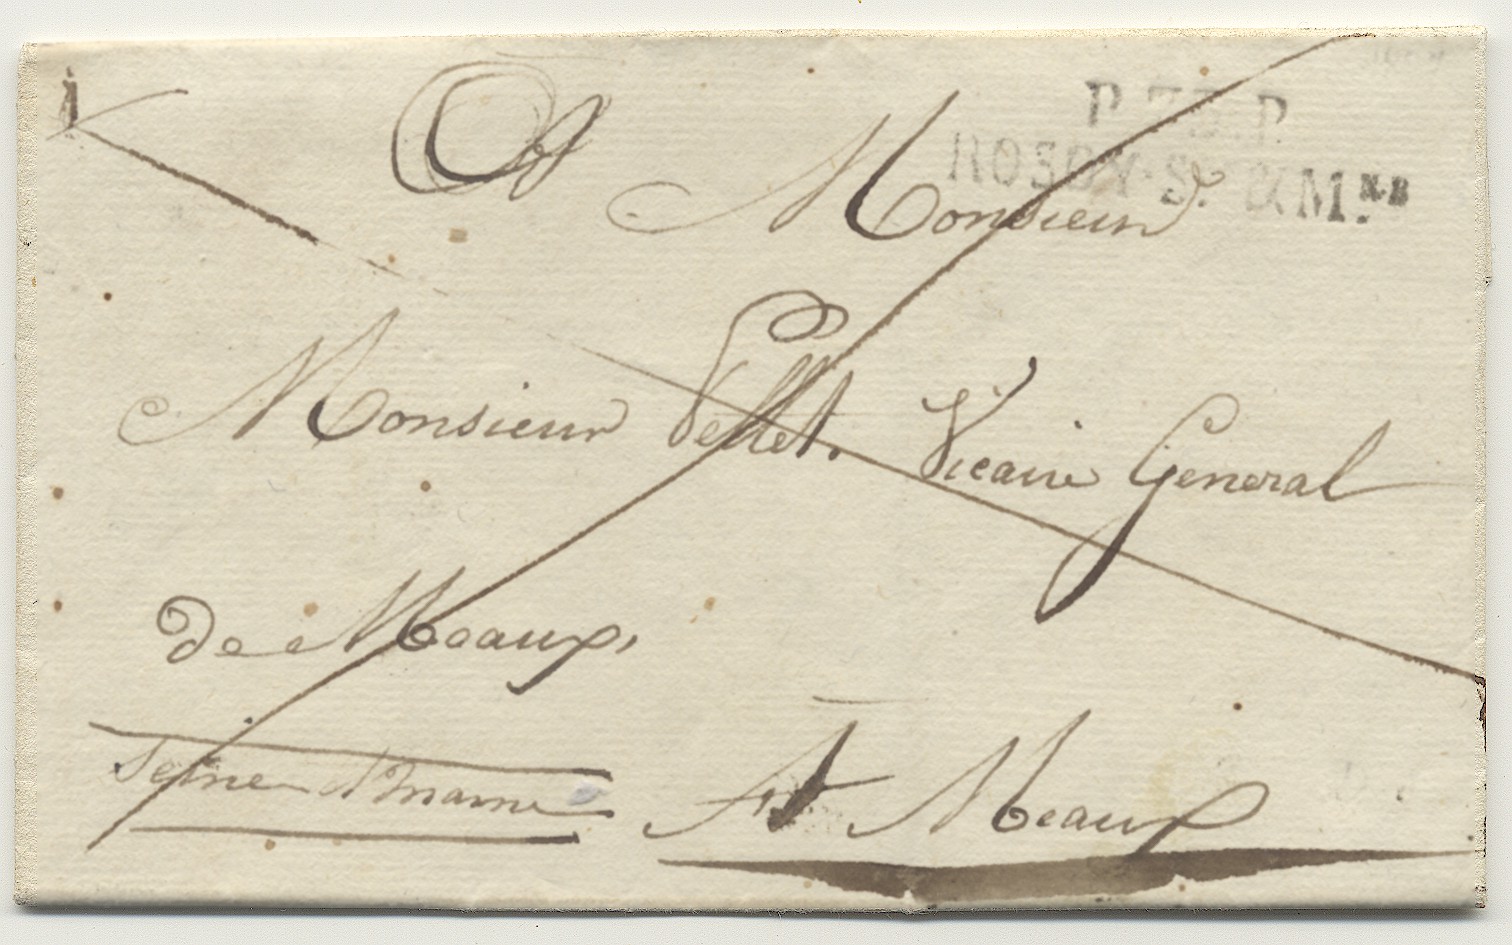 P.75.P.
ROSOY-S. & M.NE
A Monsieur
Monsieur Pellet. Vicaire General
De Meaux,
Seine et marne
A Meaux